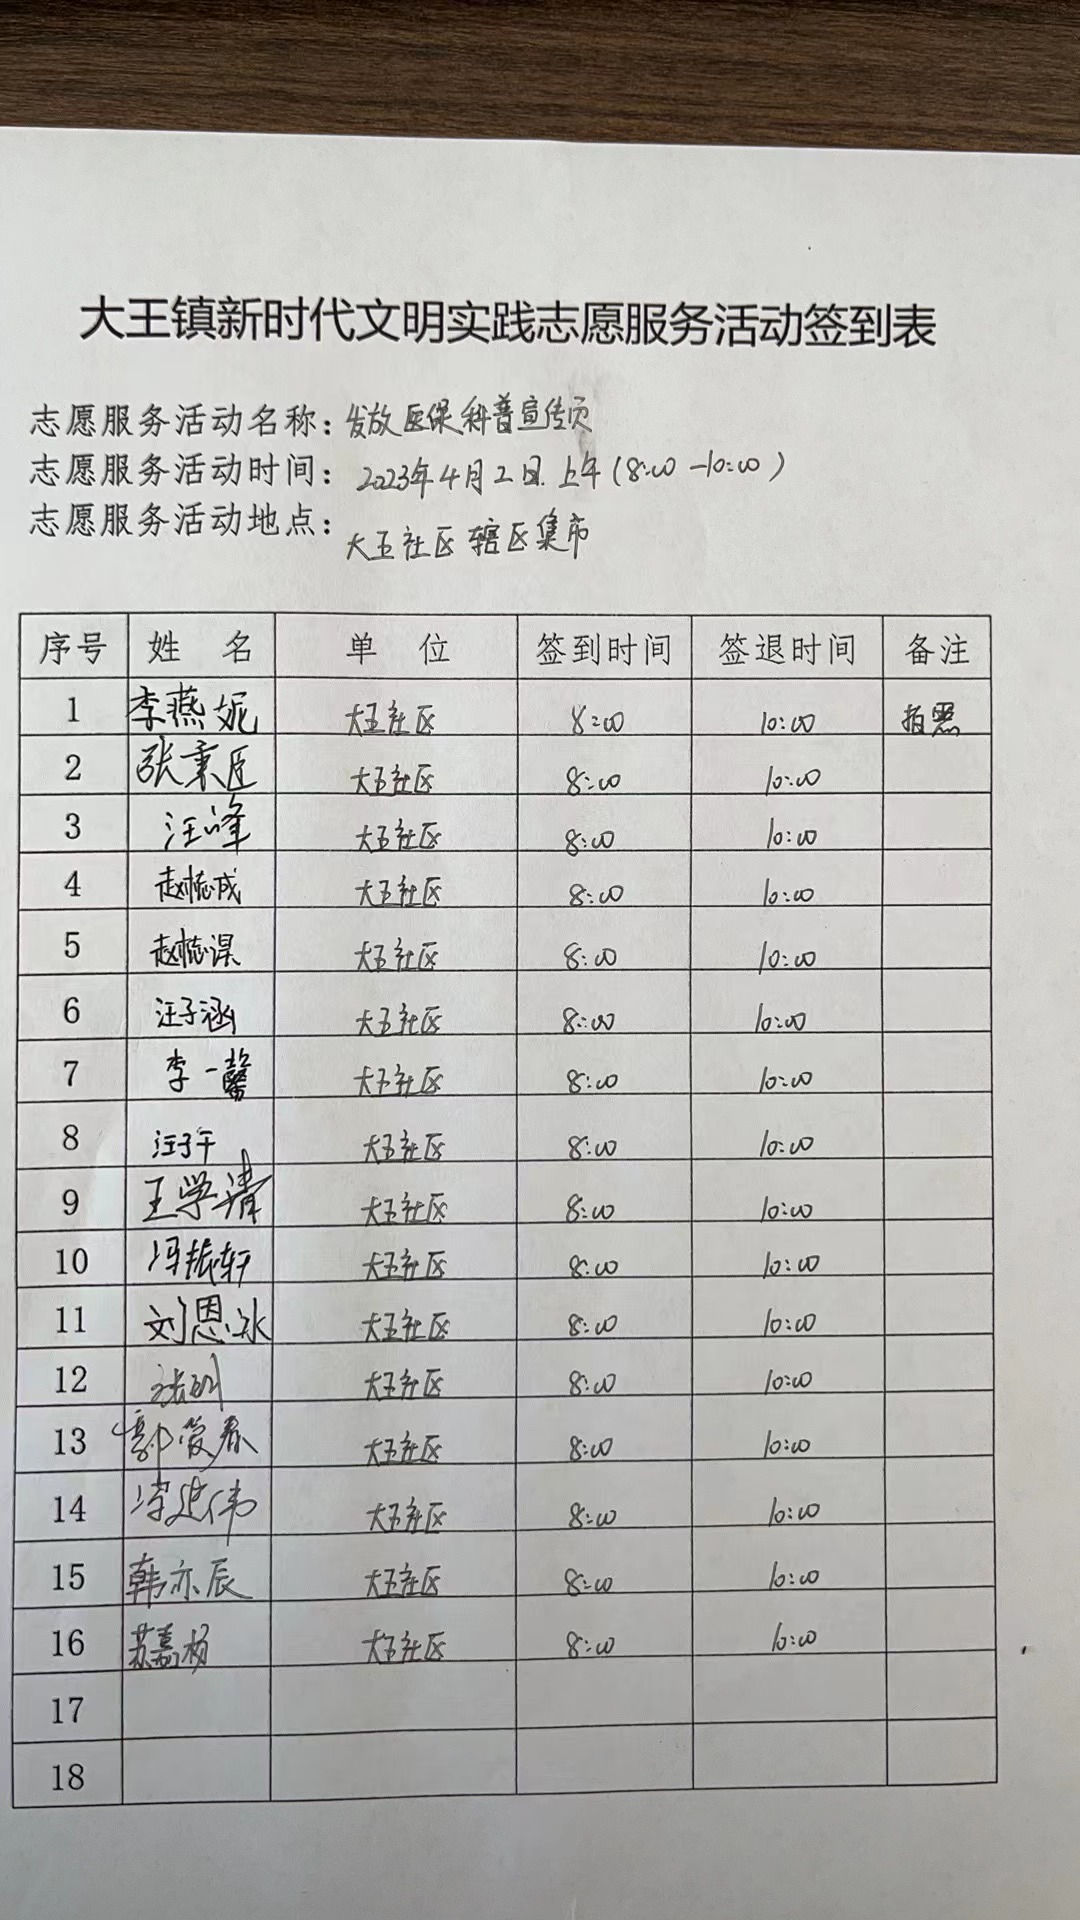 大王镇新时代文明实践志愿服务活动签到表
志愿服务活动名称：发放医保科普宣传页
志愿服务活动时间：2023年4月2日.上午(8:00-10:00)
志愿服务活动地点：大王社区辖区集市
序号 姓 名 单 位 签到时间 签退时间 备注
1 李燕妮 大王社区 8:00 10:00 拍照
2 张秉臣 大王社区 8:00 10:00
3 汪峰 大王社区 8:00 10:00
4 赵梳成 大王社区 8:00 10:00
5 大王社区 8:00 10:00
6 汪子涵 大王社区 8:00 10:00
7 李一馨 大王社区 8:00 10:00
8 汪子千 大王社区 8:00 10:00
9 王学清 大王社区 8:00 10:00
10 冯振轩 大王社区 8:00 10:00
11 刘恩冰 大王社区 8:00 10:00
12 大王社区 8:00 10:00
13 郭爱春 大王社区 8:00 10:00
14 大王社区 8:00 10:00
15 韩亦辰 大王社区 8:00 10:00
16 苏嘉杨 大王社区 8:00 10:00
17
18